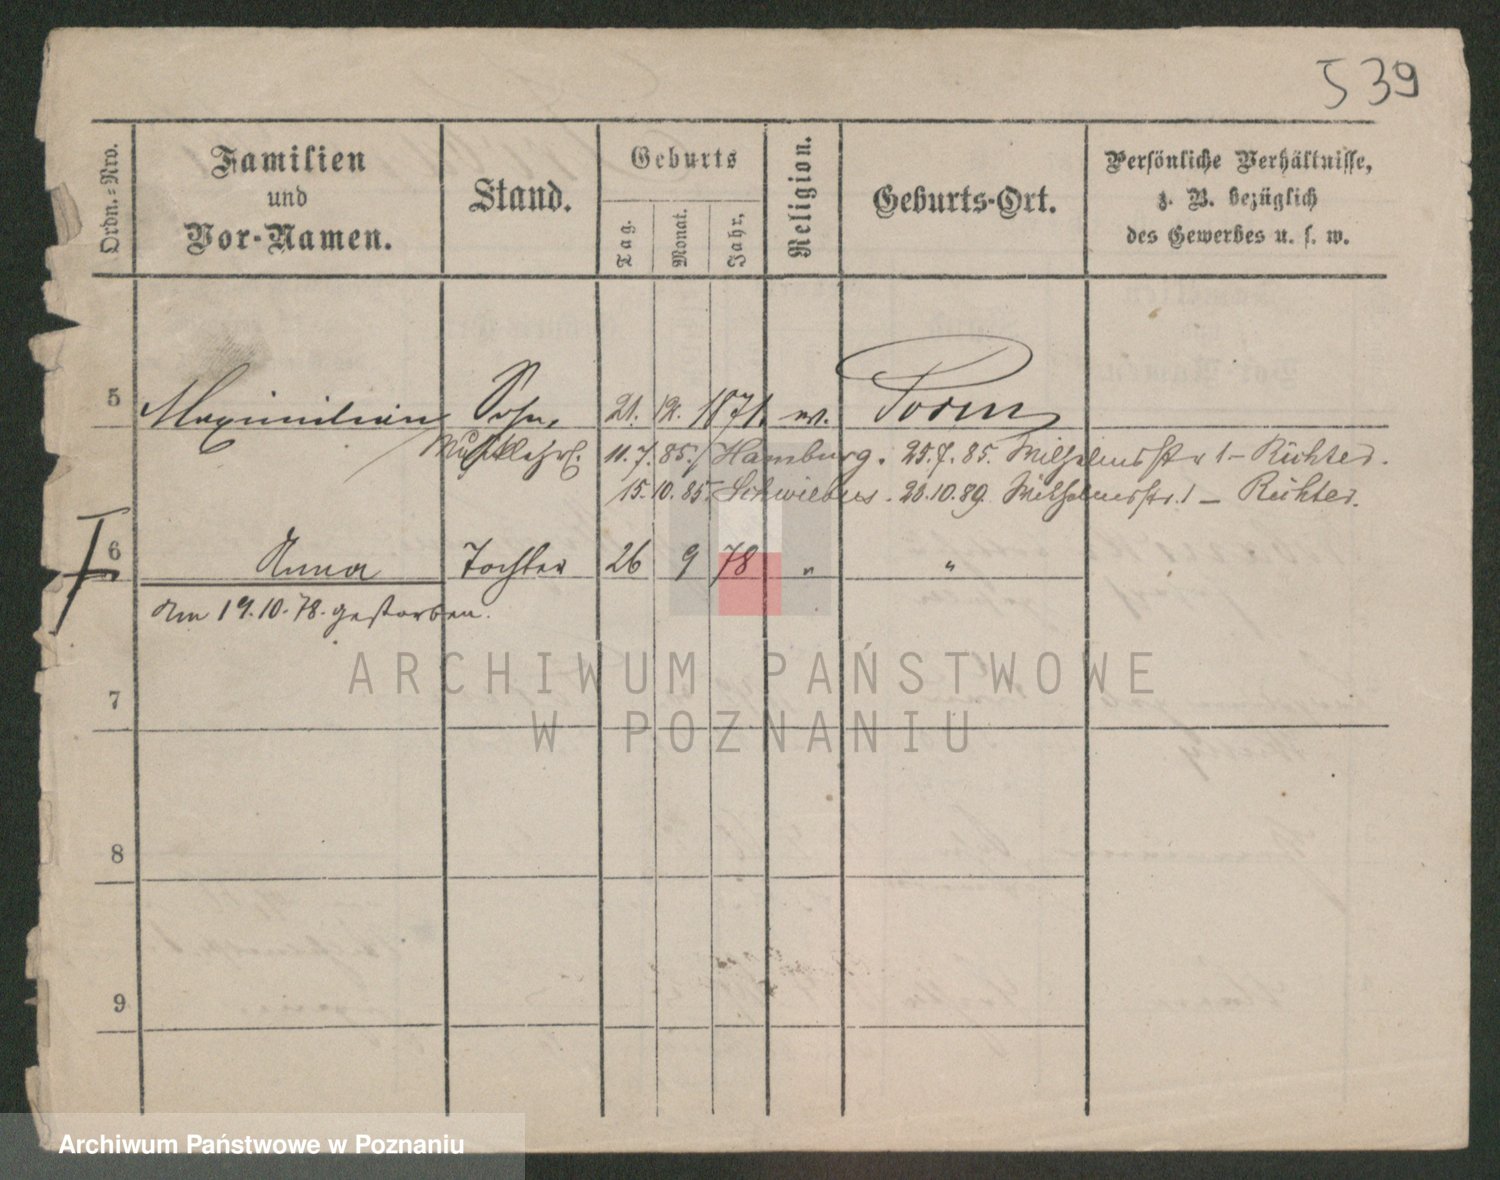 539
Ordn.-Nro.
Familien
und
Vor-Namen.
Stand.
Geburts
Tag.
Monat.
Jahr,
Religion.
Geburts-Ort.
Persönliche Verhältnisse,
z. B. bezüglich
des Gewerbes u. s. w.
5 Maximilian Sohn, 21. 12. 1871. ev. Posen
11.7.85. Hamburg. 25.7.85. Wilhelmsstr 1 - Richter.
15.10.85. Schwiebus. 20.10.89. Wilhelmsstr. 1 - Richter.
6 Anna Tochter 26 9 78 " "
Am 19.10.78. gestorben.
7
8
9
ARCHIWUM PAŃSTWOWE
W POZNANIU
Archiwum Państwowe w Poznaniu